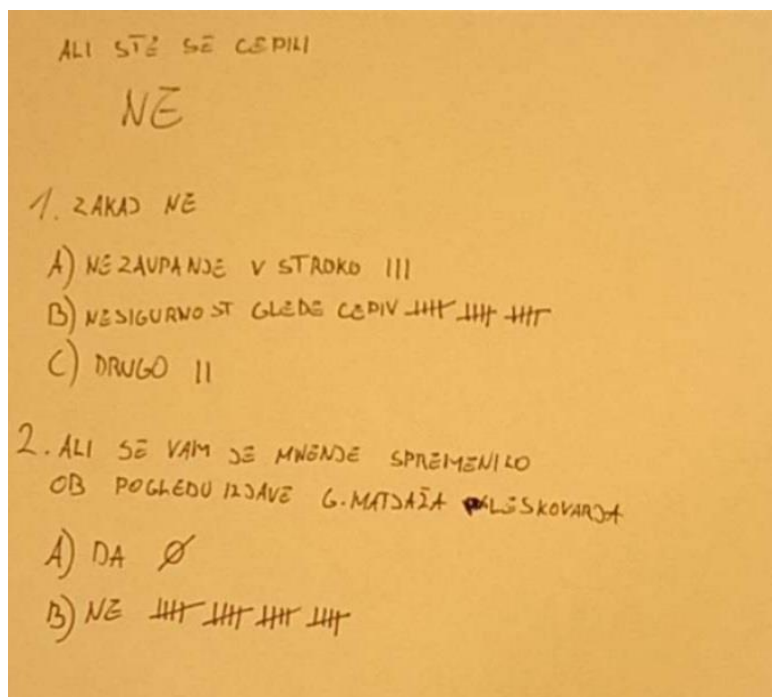 ALI STE SE CEPILI
NE
1. ZAKAJ NE
A) NEZAUPANJE V STROKO III
B) NESIGURNOST GLEDE CEPIV 卌 卌 卌
C) DRUGO II
2. ALI SE VAM JE MNENJE SPREMENILO
OB POGLEDU IZJAVE G. MATJAŽA LESKOVARJA
A) DA Ø
B) NE 卌 卌 卌 卌